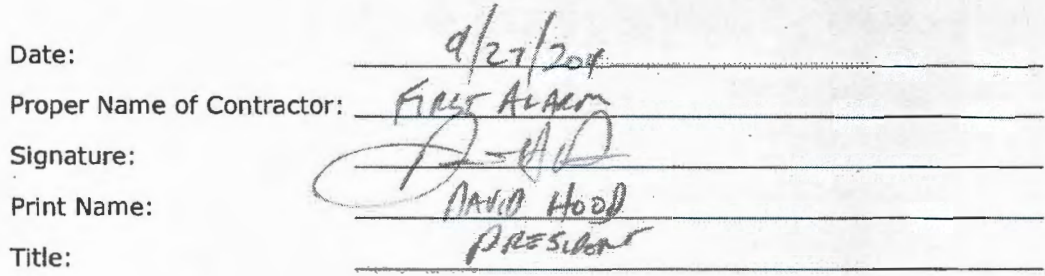 Date: 9/27/204
Proper Name of Contractor: FIRST ALARM
Signature:
Print Name: DAVID HOOD
Title: PRESIDENT